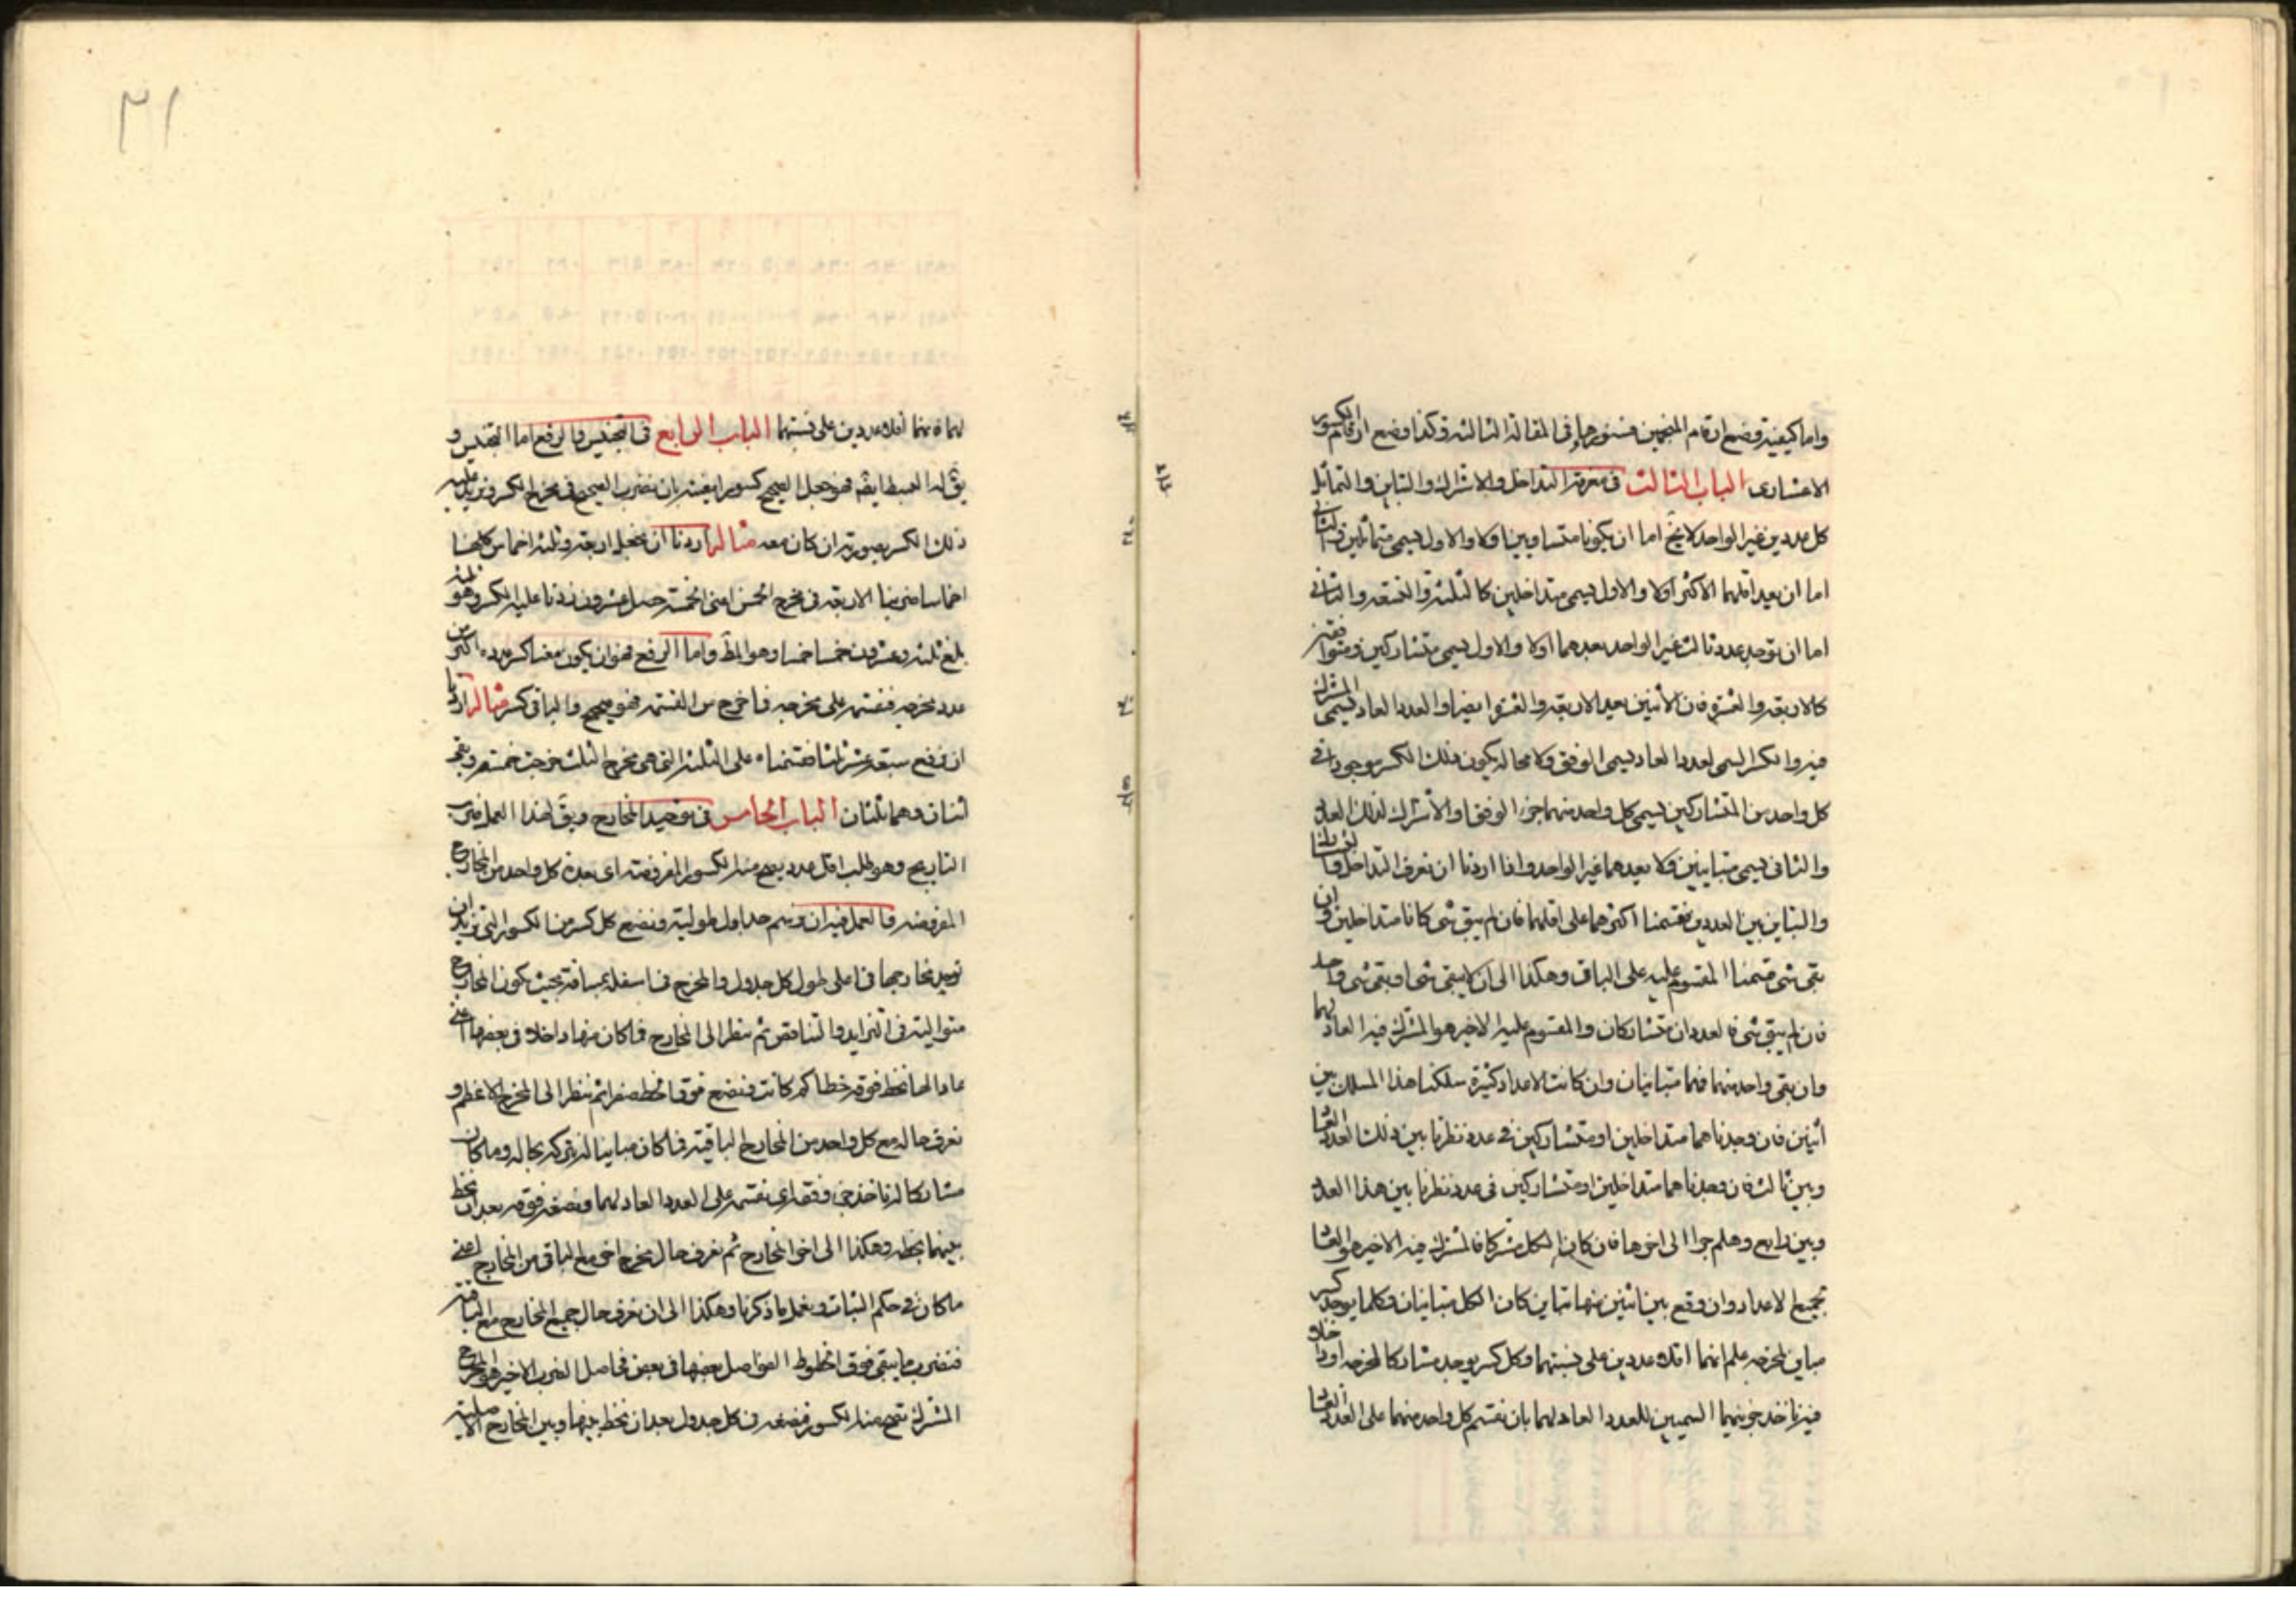 واما كيفية وضع ارقام المنجمين فسنوردها في المقالة الثالثة وكذا وضع ارقام الكسور
الاعشارى الباب الثالث في معرفة التداخل والاشتراك والتباين والتماثل
كل عددين غير الواحد لا يخ اما ان يكونا متساويين اولا والاول يسمى متماثلين والثانى
اما ان يعد اقلهما الاكثر اولا والاول يسمى متداخلين كالثلثة والتسعة والثانى
اما ان يوجد عدد ثالث غير الواحد يعدهما اولا والاول يسمى متشاركين ومتوافقين
كالاربعة والعشرة فان الاثنين يعد الاربعة والعشرة ايضا والعدد العاد يسمى المشترك
فيه والكسر السمى لعدد العاد يسمى الوفق ولا محالة يكون ذلك الكسر موجودا فى
كل واحد من المتشاركين يسمى كل واحد منهما جزء الوفق او الاشتراك لذلك العدد
والثانى يسمى متباينين ولا يعدهما غير الواحد واذا اردنا ان نعرف التداخل والتشارك
والتباين بين العددين نقسمنا اكثرهما على اقلهما فان لم يبق شى كانا متداخلين وان
بقى شى قسمنا المقسوم عليه على الباقى وهكذا الى ان لا يبقى شى او بقى شى واحد
فان لم يبق شى فالعددان متشاركان والمقسوم عليه الاخير هو المشترك فيه العاد لهما
وان بقى واحد منهما فهما متباينان وان كانت الاعداد كثيرة سلكنا هذا المسلك بين
اثنين فان وجدناهما متداخلين او متشاركين فى عدد نظرنا بين ذلك العدد العاد
وبين ثالث فان وجدناهما متداخلين او متشاركين فى عدد نظرنا بين هذا العدد
وبين رابع وهلم جرا الى اخرها فان كان الكل مشتركا فالمشترك فيه الاخير هو العاد
لجميع الاعداد وان وقع بين اثنين منها تباين كان الكل متباينان وكلما يوجد كسر
مباين لمخرجه علم انهما اقل عددين على نسبتهما وكل كسر يوجد مشاركا لمخرجه او داخلا
فيه ناخذ جزئيهما السميين للعدد العاد لهما بان نقسم كل واحد منهما على العدد العاد
٣١
لهما فهما اقل عددين على نسبتهما الباب الرابع فى التجنيس والرفع اما التجنيس و
يق له البسط ايضه فهو جعل الصحيح كسورا معينة بان نضرب الصحيح فى مخرج الكسر ونزيد عليه
ذلك الكسر بصورته ان كان معه مثاله اردنا ان نجعل اربعة وثلثة اخماس كلها
اخماسا ضربنا الاربعة فى مخرج الخمس اعنى الخمسة حصل عشرون زدنا عليه الكسر وهو ثلثة
بلغ ثلثة وعشرون خمسا خمسا وهو المط واما الرفع فهو ان يكون معنا كسر عدده اكثر من
عدد مخرجه فنقسمه على مخرجه فما خرج من القسمة فهو صحيح والباقى كسر مثاله اردنا
ان نرفع سبعة عشر ثلثا قسمناه على الثلثة التى هى مخرج الثلث خرجت خمسة وبقى
اثنان وهما ثلثان الباب الخامس فى توحيد المخارج ويق لهذا العمل
وهو طلب اقل عدد يصح منه الكسور المفروضة اى يعده كل واحد من المخارج
المفروضة والعمل فيه ان نرسم جداول طولية ونضع كل كسر من الكسور التى نريد ان
نوحد مخارجها فى اعلى طول كل جدول والمخرج فى اسفله بمسافة بحيث يكون المخارج
متوالية فى التزايد والتناقص ثم ننظر الى المخارج فما كان منها داخلا فى بعضها اعنى
عادا لها نخط فوقه خطا كم كانت ونضع فوق الخط صفرا ثم ننظر الى المخرج الاعظم و
نعرف حاله مع كل واحد من المخارج الباقية فما كان مباينا له نتركه بحاله وما كان
مشاركا له ناخذ جزء وفقه اى نقسمه على العدد العاد لهما ونضعه فوقه بعد ان نخط
بينهما بخط وهكذا الى اخر المخارج ثم نعرف حال مخرج اخر مع الباقى من المخارج اعنى
ما كان فى حكم الثبات ونعمل ما ذكرنا وهكذا الى ان نعرف حال جميع المخارج مع الباقية
فنضرب ما يبقى فوق الخطوط الفواصل بعضها فى بعض فحاصل الضرب الاخير هو المخرج
المشترك تصح منه الكسور فنضعه فى كل جدول بعد ان نخط بينها وبين المخارج الاصلية